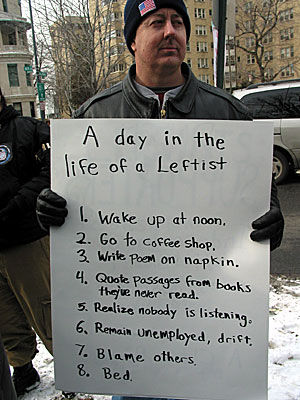 A day in the
life of a Leftist
1. Wake up at noon.
2. Go to Coffee shop.
3. Write Poem on napkin.
4. Quote passages from books
they've never read.
5. Realize nobody is listening.
6. Remain unemployed, drift.
7. Blame others.
8. Bed.